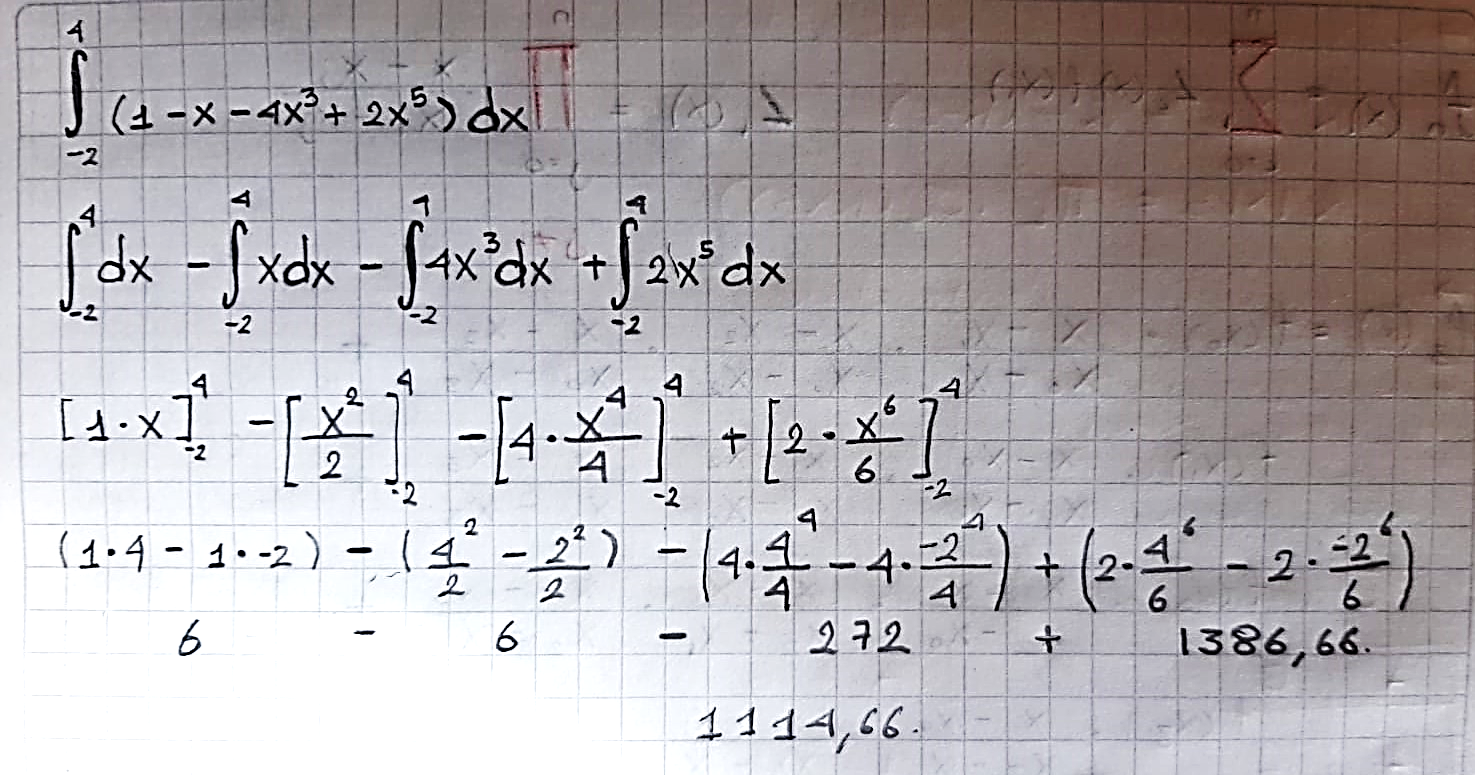 ∫_{-2}^{4} (1 - x - 4x³ + 2x⁵) dx
∫_{-2}^{4} dx - ∫_{-2}^{4} xdx - ∫_{-2}^{4} 4x³dx + ∫_{-2}^{4} 2x⁵ dx
[1·x]_{-2}^{4} - [x²/2]_{-2}^{4} - [4·x⁴/4]_{-2}^{4} + [2·x⁶/6]_{-2}^{4}
(1·4 - 1·-2) - (4²/2 - -2²/2) - (4·4⁴/4 - 4·-2⁴/4) + (2·4⁶/6 - 2·-2⁶/6)
6 - 6 - 272 + 1386,66.
1114,66.